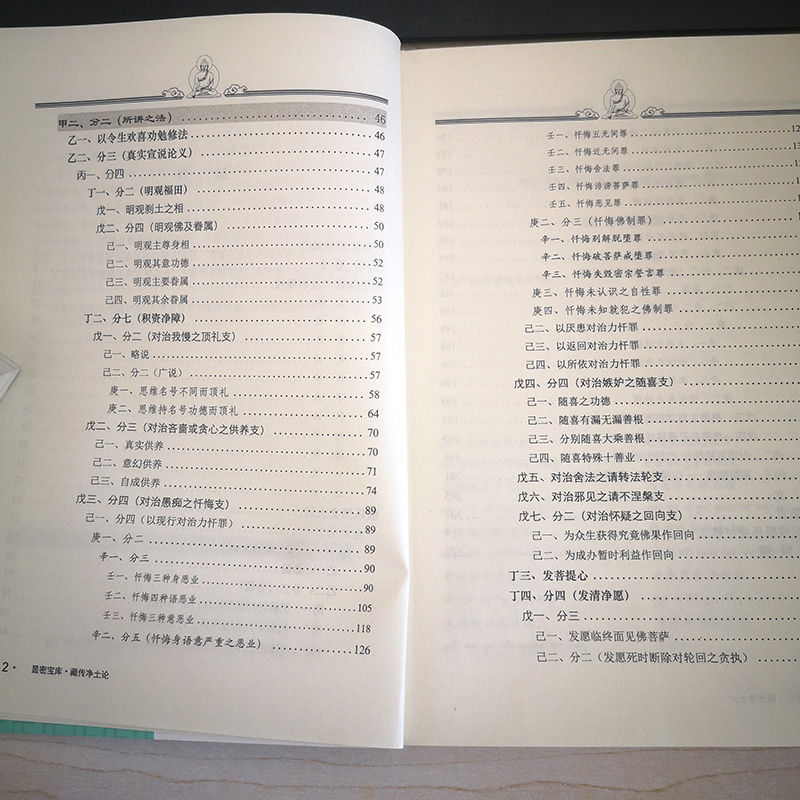 甲二、分二（所讲之法）……46
乙一、以令生欢喜劝勉修法……46
乙二、分三（真实宣说论义）……47
丙一、分四……47
丁一、分二（明观福田）……48
戊一、明观刹土之相……48
戊二、分四（明观佛及眷属）……50
己一、明观主尊身相……50
己二、明观其意功德……52
己三、明观主要眷属……52
己四、明观其余眷属……53
丁二、分七（积资净障）……56
戊一、分二（对治我慢之顶礼支）……57
己一、略说……57
己二、分二（广说）……57
庚一、思维名号不同而顶礼……58
庚二、思维持名号功德而顶礼……64
戊二、分三（对治吝啬或贪心之供养支）……70
己一、真实供养……70
己二、意幻供养……71
己三、自成供养……74
戊三、分四（对治愚痴之忏悔支）……89
己一、分四（以现行对治力忏罪）……89
庚一、分二……89
辛一、分三……90
壬一、忏悔三种身恶业……90
壬二、忏悔四种语恶业……105
壬三、忏悔三种意恶业……118
辛二、分五（忏悔身语意严重之恶业）……126
2·显密宝库·藏传净土论
壬一、忏悔五无间罪……
壬二、忏悔近无间罪……
壬三、忏悔舍法罪……
壬四、忏悔诽谤菩萨罪……
壬五、忏悔恶见罪……
庚二、分三（忏悔佛制罪）……
辛一、忏悔别解脱堕罪……
辛二、忏悔破菩萨戒堕罪……
辛三、忏悔失毁密宗誓言罪……
庚三、忏悔未认识之自性罪……
庚四、忏悔未知就犯之佛制罪……
己二、以厌患对治力忏罪……
己三、以返回对治力忏罪……
己四、以所依对治力忏罪……
戊四、分四（对治嫉妒之随喜支）……
己一、随喜之功德……
己二、随喜有漏无漏善根……
己三、分别随喜大乘善根……
己四、随喜特殊十善业……
戊五、对治舍法之请转法轮支……
戊六、对治邪见之请不涅槃支……
戊七、分二（对治怀疑之回向支）……
己一、为众生获得究竟佛果作回向……
己二、为成办暂时利益作回向……
丁三、发菩提心……
丁四、分四（发清净愿）……
戊一、分三……
己一、发愿临终面见佛菩萨……
己二、分二（发愿死时断除对轮回之贪执）……